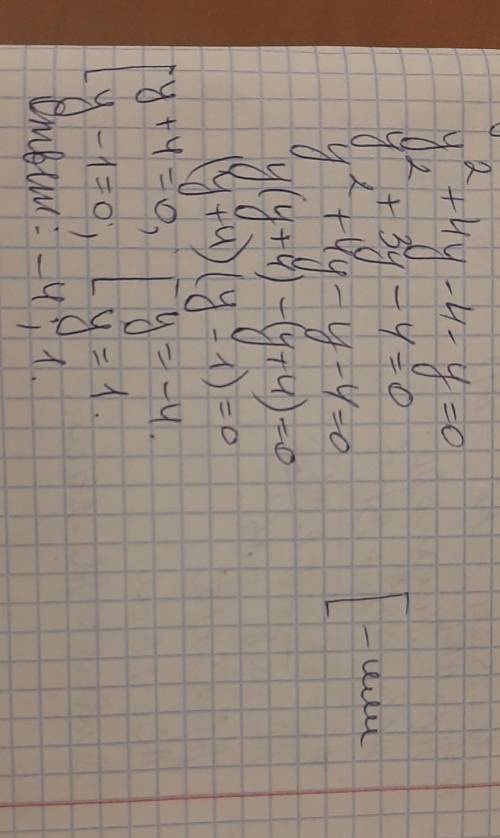 y² + 4y - 4 - y = 0
y² + 3y - 4 = 0
y² + 4y - y - 4 = 0
y(y+4) - (y+4) = 0
(y+4)(y-1) = 0
[ y+4=0, [ y = -4.
[ y-1=0; [ y = 1.
Ответ: -4; 1.
[ - или